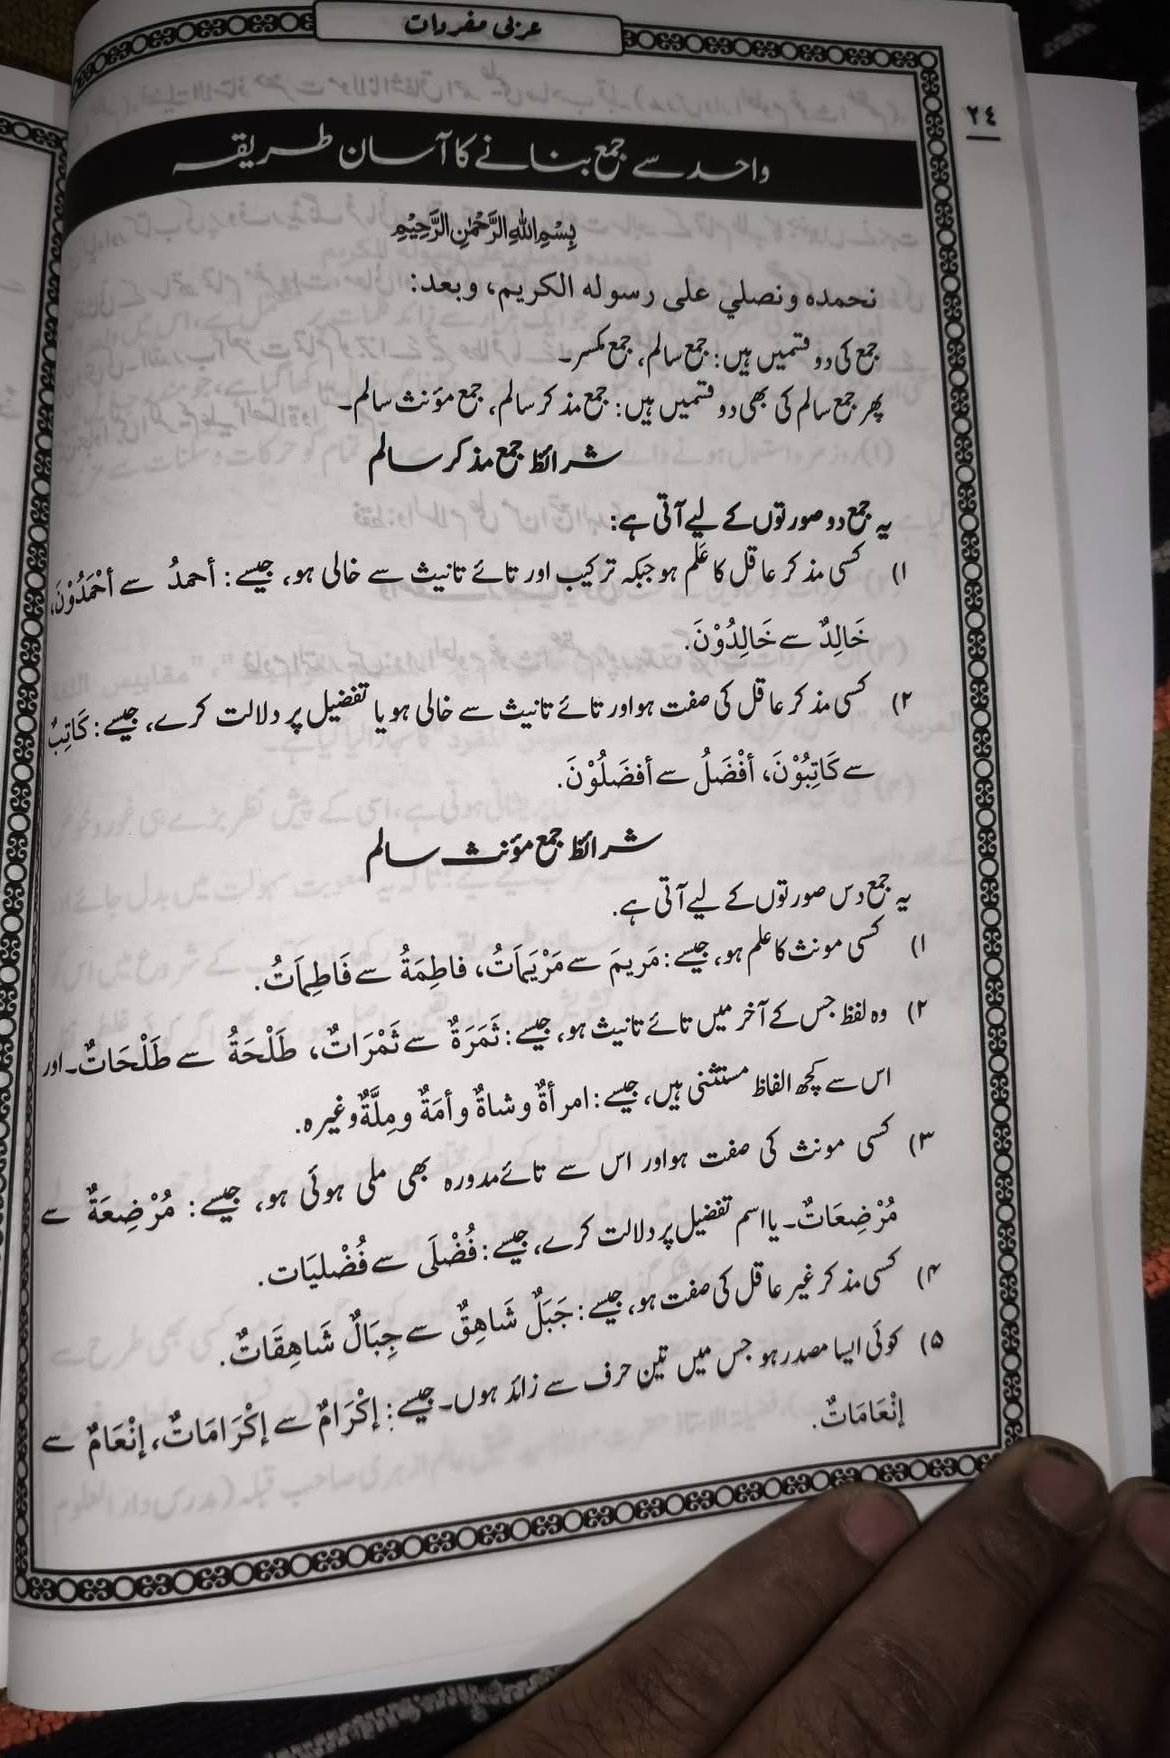 عربی مفردات
۲٤
واحد سے جمع بنانے کا آسان طریقہ
بِسْمِ اللهِ الرَّحْمٰنِ الرَّحِيْمِ
نحمده ونصلي على رسوله الكريم، وبعد:
جمع کی دو قسمیں ہیں: جمع سالم، جمع مکسر۔
پھر جمع سالم کی بھی دو قسمیں ہیں: جمع مذکر سالم، جمع مؤنث سالم۔
شرائط جمع مذکر سالم
یہ جمع دو صورتوں کے لیے آتی ہے:
۱) کسی مذکر عاقل کا عَلم ہو جبکہ ترکیب اور تائے تانیث سے خالی ہو، جیسے: أحمدُ سے أحْمَدُوْنَ،
خَالِدٌ سے خَالِدُوْنَ.
۲) کسی مذکر عاقل کی صفت ہو اور تائے تانیث سے خالی ہو یا تفضیل پر دلالت کرے، جیسے: کَاتِبٌ
سے کَاتِبُوْنَ، أفْضَلُ سے أفضَلُوْنَ.
شرائط جمع مؤنث سالم
یہ جمع دس صورتوں کے لیے آتی ہے.
۱) کسی مونث کا علم ہو، جیسے: مَریمَ سے مَرْیَمَاتُ، فاطِمَةُ سے فَاطِمَاتُ.
۲) وہ لفظ جس کے آخر میں تائے تانیث ہو، جیسے: ثَمَرَةٌ سے ثَمْرَاتٌ، طَلْحَةُ سے طَلْحَاتٌ۔ اور
اس سے کچھ الفاظ مستثنی ہیں، جیسے: امرأةٌ وشاةٌ وأمَةٌ ومِلَّةٌ وغیرہ.
۳) کسی مونث کی صفت ہو اور اس سے تائے مدورہ بھی ملی ہوئی ہو، جیسے: مُرْضِعَةٌ سے
مُرْضِعَاتٌ۔ یا اسم تفضیل پر دلالت کرے، جیسے: فُضْلَى سے فُضْليَات.
۴) کسی مذکر غیر عاقل کی صفت ہو، جیسے: جَبَلٌ شَاهِقٌ سے جِبَالٌ شَاهِقَاتٌ.
۵) کوئی ایسا مصدر ہو جس میں تین حرف سے زائد ہوں۔ جیسے: إكْرَامٌ سے إكْرَامَاتٌ، إنْعَامٌ سے
إنْعَامَاتٌ.